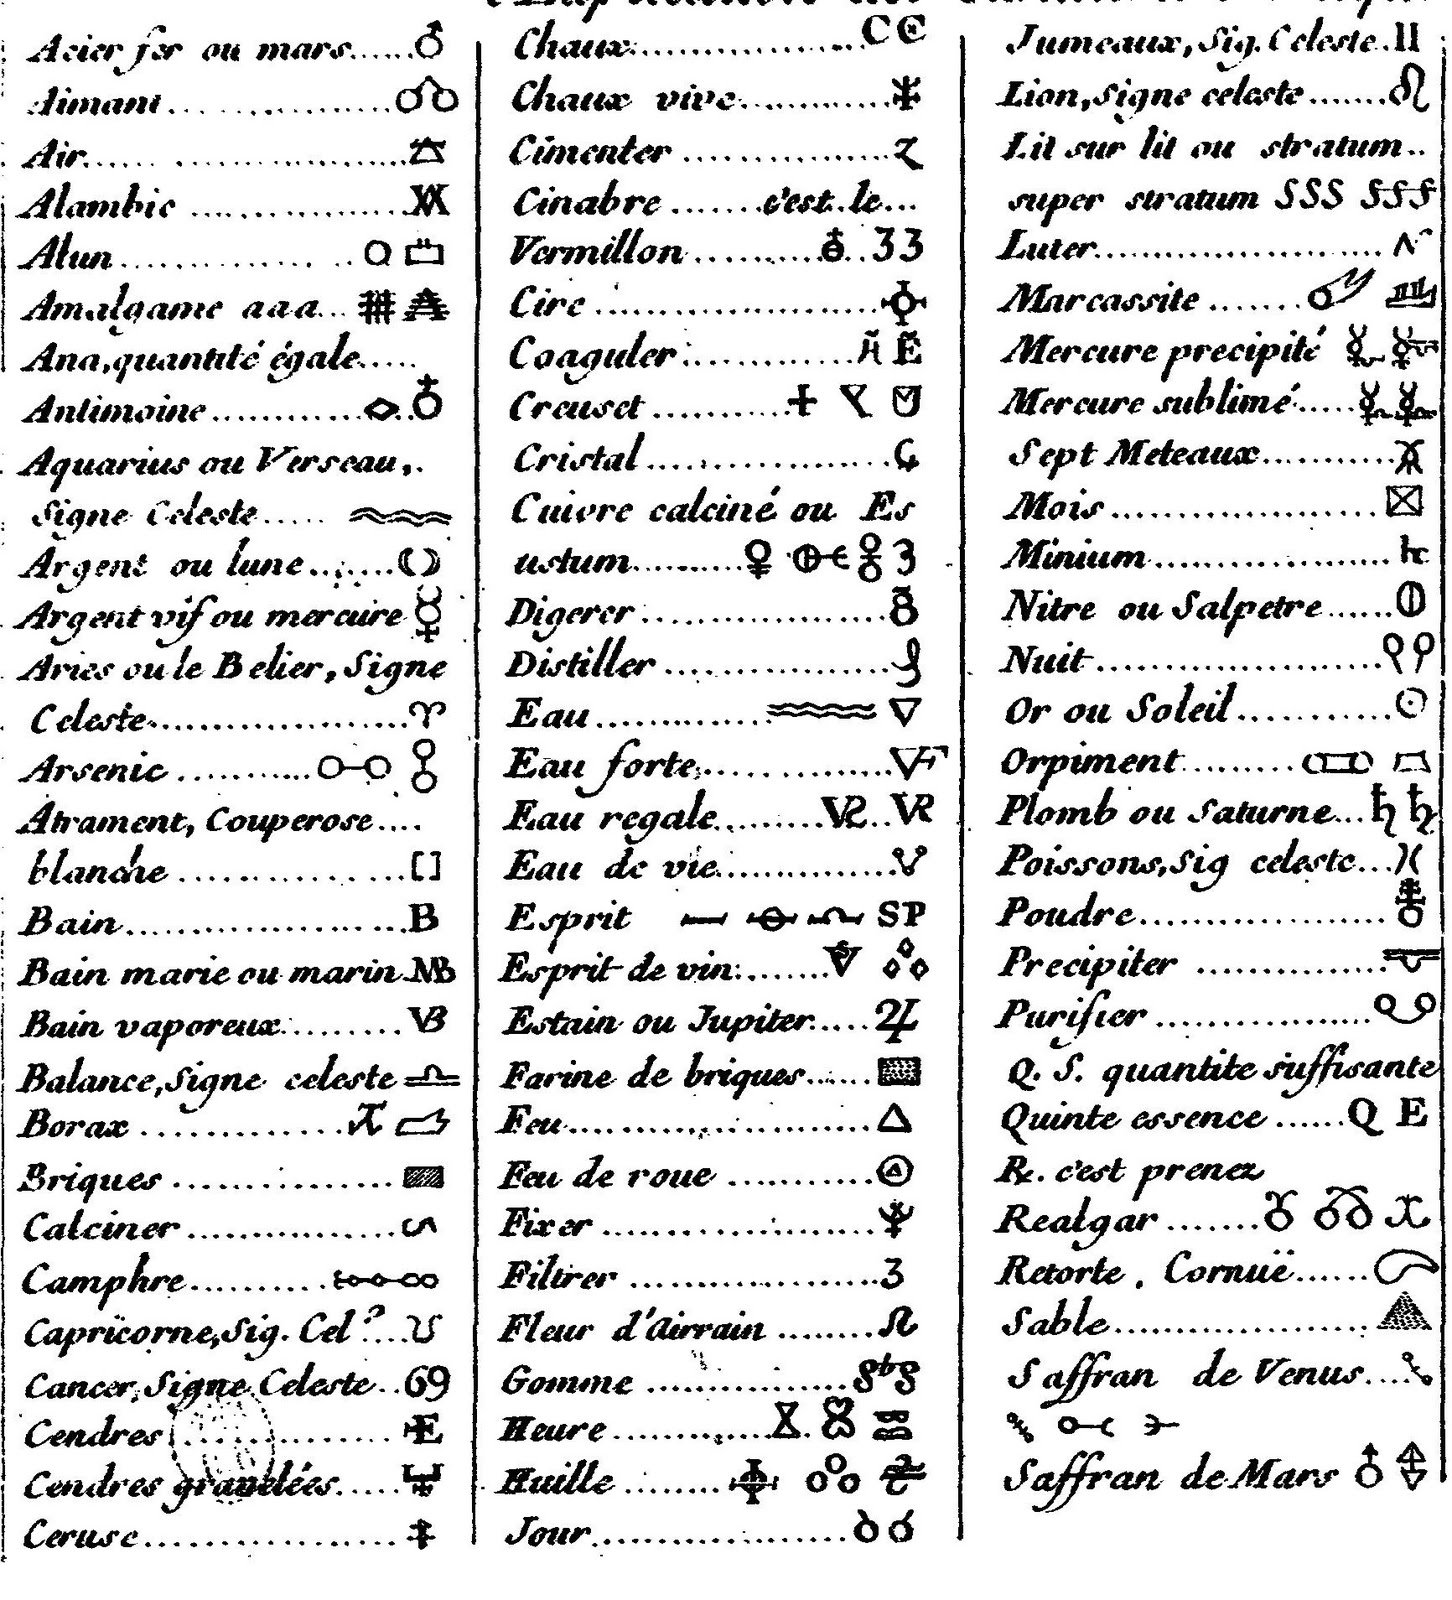 Acier fer ou mars......♂
Aimant
Air
Alambic
Alun
Amalgame aaa
Ana, quantité égale.....
Antimoine
Aquarius ou Verseau,.
Signe Celeste
Argent ou lune
Argent vif ou mercure ☿
Aries ou le Belier, Signe
Celeste ♈
Arsenic
Atrament, Couperose....
blanche []
Bain B
Bain marie ou marin MB
Bain vaporeux VB
Balance, Signe celeste ♎
Borax
Briques
Calciner
Camphre
Capricorne, Sig. Cel?
Cancer, Signe Celeste 69
Cendres
Cendres gravelées
Ceruse
Chaux C
Chaux vive
Cimenter
Cinabre c'est le...
Vermillon 33
Cire
Coaguler
Creuset
Cristal
Cuivre calciné ou Es
ustum ♀
Digerer
Distiller
Eau ▽
Eau forte
Eau regale
Eau de vie
Esprit SP
Esprit de vin
Estain ou Jupiter ♃
Farine de briques
Feu △
Feu de roue
Fixer
Filtrer 3
Fleur d'Airrain
Gomme
Heure
Huille
Jour
Jumeaux, Sig. Celeste II
Lion, Signe celeste ♌
Lit sur lit ou stratum..
super stratum SSS SSS
Luter
Marcassite
Mercure precipité
Mercure sublimé
Sept Meteaux
Mois
Minium
Nitre ou Salpetre
Nuit
Or ou Soleil ☉
Orpiment
Plomb ou Saturne ♄ ♄
Poissons, Sig celeste
Poudre
Precipiter
Purifier
Q. S. quantite suffisante
Quinte essence Q E
℞. c'est prenez
Realgar
Retorte, Cornuë
Sable
Saffran de Venus
Saffran de Mars